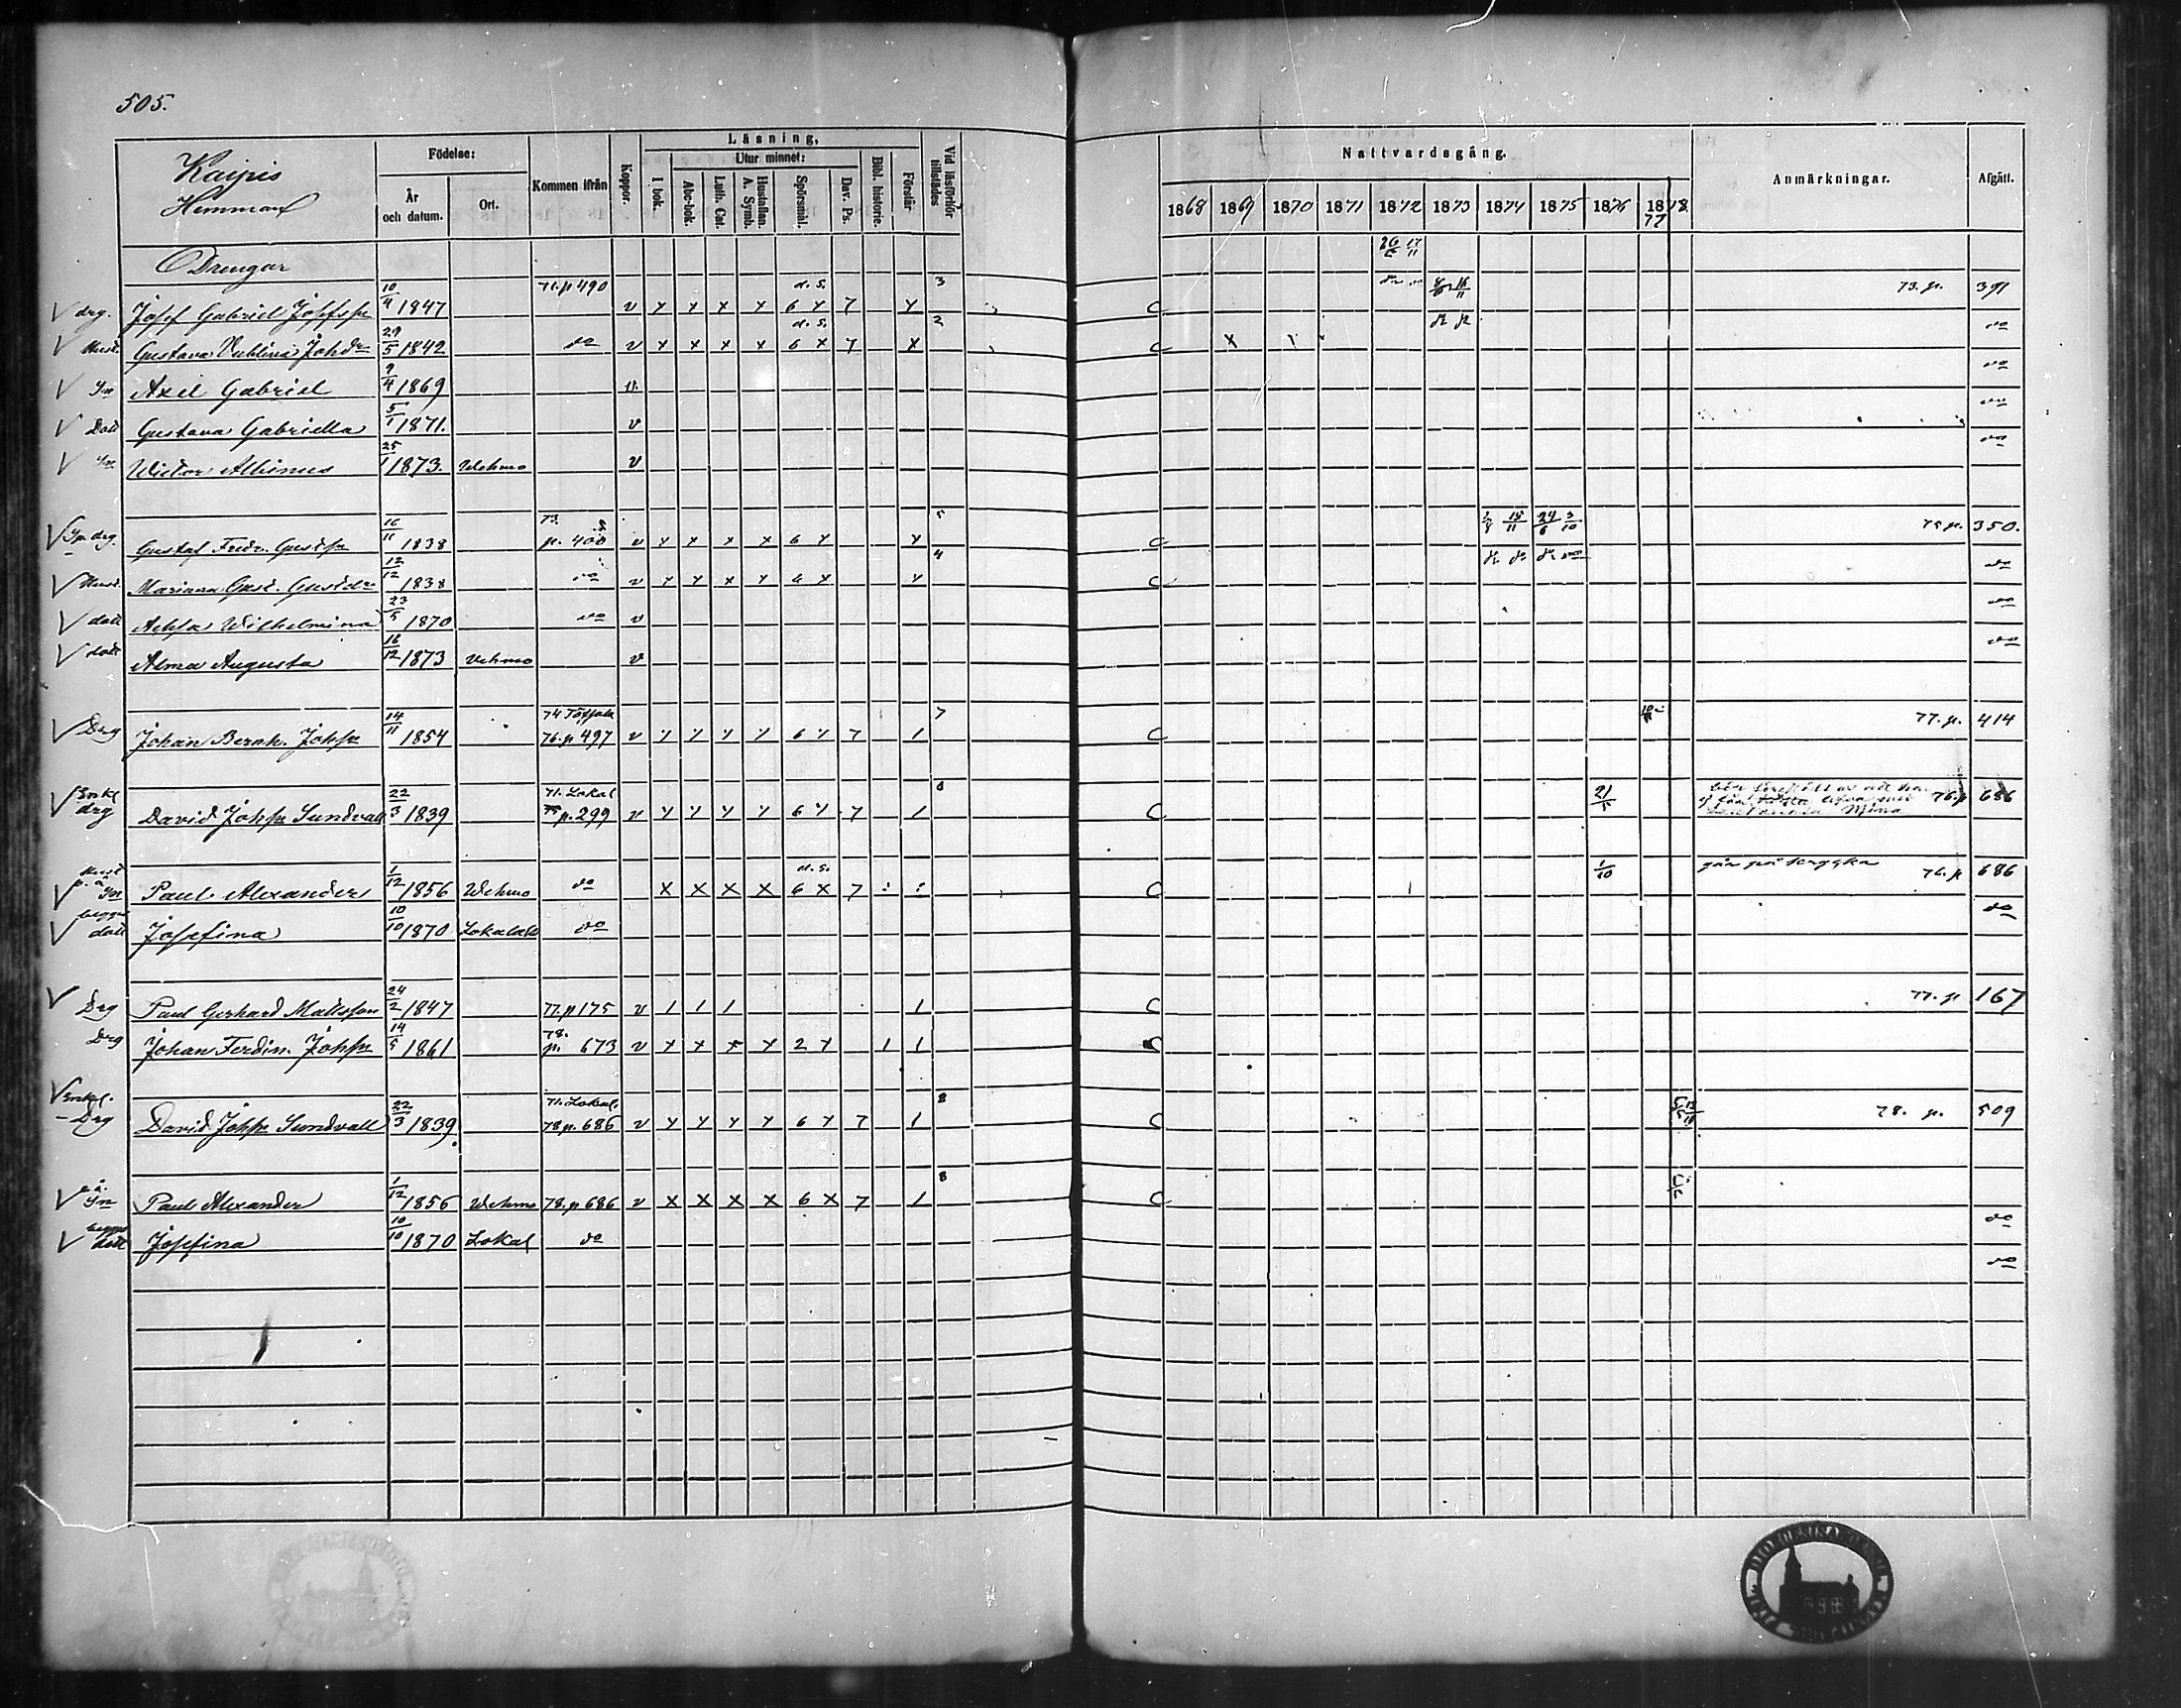 505.
Kaipis
Hemman
Födelse:
År och datum.
Ort.
Kommen ifrån
Koppor.
Läsning,
I bok.
Utur minnet:
Abc-bok.
Luth. Cat.
Hustaflan. A. Symb.
Spörsmål.
Dav. Ps.
Bibl. historie.
Förstår
Vid läsförhör tillstädes
Nattvardsgång.
1868 1869 1870 1871 1872 1873 1874 1875 1876 1877 1878
Anmärkningar.
Afgått.
Drengar 26 17/11
drg. Josef Gabriel Josefss 10/4 1847 71. p 490 v x x x x 6 x 7 x 3 C 73. p. 391
Hust. Gustava Johdr 29/5 1842 do v x x x x 6 x 7 x 2 C x do
Sn Axel Gabriel 9/4 1869 v do
Dott Gustava Gabriella 5/1 1871. v do
Sn Wictor Albinus 25/1 1873. Wehmo v do
drg. Gustaf Fredr. Gustfsn 16/11 1838 73. p. 400 v x x x x 6 x x 5 C 15/11 24/6 3/10 75 p. 350.
Hust. Mariana Gust. Gustdr 12/12 1838 do v x x x x 6 x x 4 C do do do do
dott Wilhelmina 23/5 1870 do v do
dott Alma Augusta 16/12 1873 Vehmo v do
Drg Johan Bernh. Johsn 14/11 1854 74 76. p 497 v x x x x 6 x 7 1 7 C 77. p. 414
Enkl drg David Johsn Sundvall 22/3 1839 71. Lokal p. 299 v x x x x 6 x 7 1 C 21/5 Mina 76. p 686
Sn Paul Alexander 1/12 1856 Wehmo do x x x x 6 x 7 C 1/10 går på krycka 76. p 686
dott Josefina 10/10 1870 do do
Drg Paul Gerhard Mattsson 24/2 1847 77. p 175 v 1 1 1 1 C 77. p 167
Drg Johan Ferdin. Johsn 14/5 1861 78. p. 673 v x x x x 2 x 1 1 C
Enkl. Drg David Johsn Sundvall 22/3 1839 71. Lokal. 78 p. 686 v x x x x 6 x 7 1 8 C 78. p. 509
Sn Paul Alexander 1/12 1856 Wehmo 78. p 686 v x x x x 6 x 7 1 8 C do
dott Josefina 10/10 1870 Lokal do do